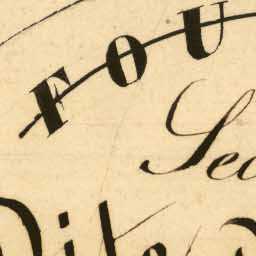 FOU
Sec
Dite